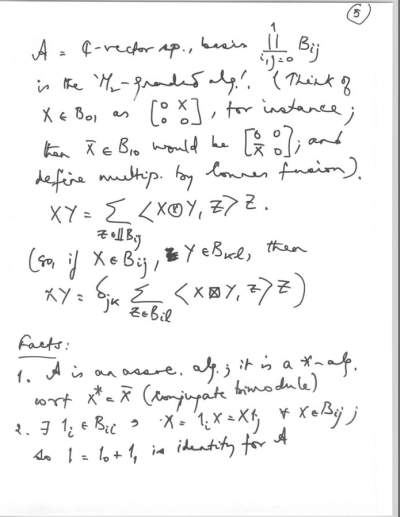 5
A = ℂ-vector sp., basis ∐_{i,j=0}^{1} B_{ij}
is the 'M_2-graded alg'. (Think of
X ∈ B_{01} as [0 X; 0 0], for instance;
then X̄ ∈ B_{10} would be [0 0; X̄ 0]; and
define multip. by Connes fusion).
XY = ∑_{Z∈∐B_{ij}} <X⊗Y, Z> Z.
(so, if X ∈ B_{ij}, Y ∈ B_{kl}, then
XY = δ_{jk} ∑_{Z∈B_{il}} <X⊠Y, Z> Z)
Facts:
1. A is an assoc. alg.; it is a *-alg.
wrt X* = X̄ (conjugate bimodule)
2. ∃ 1_i ∈ B_{ii} ∋ X = 1_i X = X 1_j ∀ X ∈ B_{ij};
so 1 = 1_0 + 1_1 is identity for A